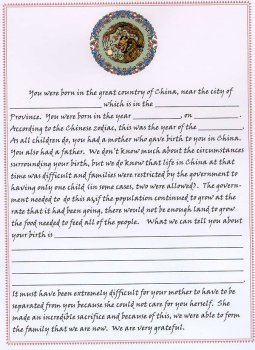 You were born in the great country of China, near the city of
____________________ which is in the ____________________
Province. You were born in the year __________, on __________.
According to the Chinese zodiac, this was the year of the __________.
As all children do, you had a mother who gave birth to you in China.
You also had a father. We don't know much about the circumstances
surrounding your birth, but we do know that life in China at that
time was difficult and families were restricted by the government to
having only one child (in some cases, two were allowed). The govern-
ment needed to do this as, if the population continued to grow at the
rate that it had been going, there would not be enough land to grow
the food needed to feed all of the people. What we can tell you about
your birth is ____________________
____________________
____________________
____________________.
It must have been extremely difficult for your mother to have to be
separated from you because she could not care for you herself. She
made an incredible sacrifice and because of this, we were able to form
the family that we are now. We are very grateful.